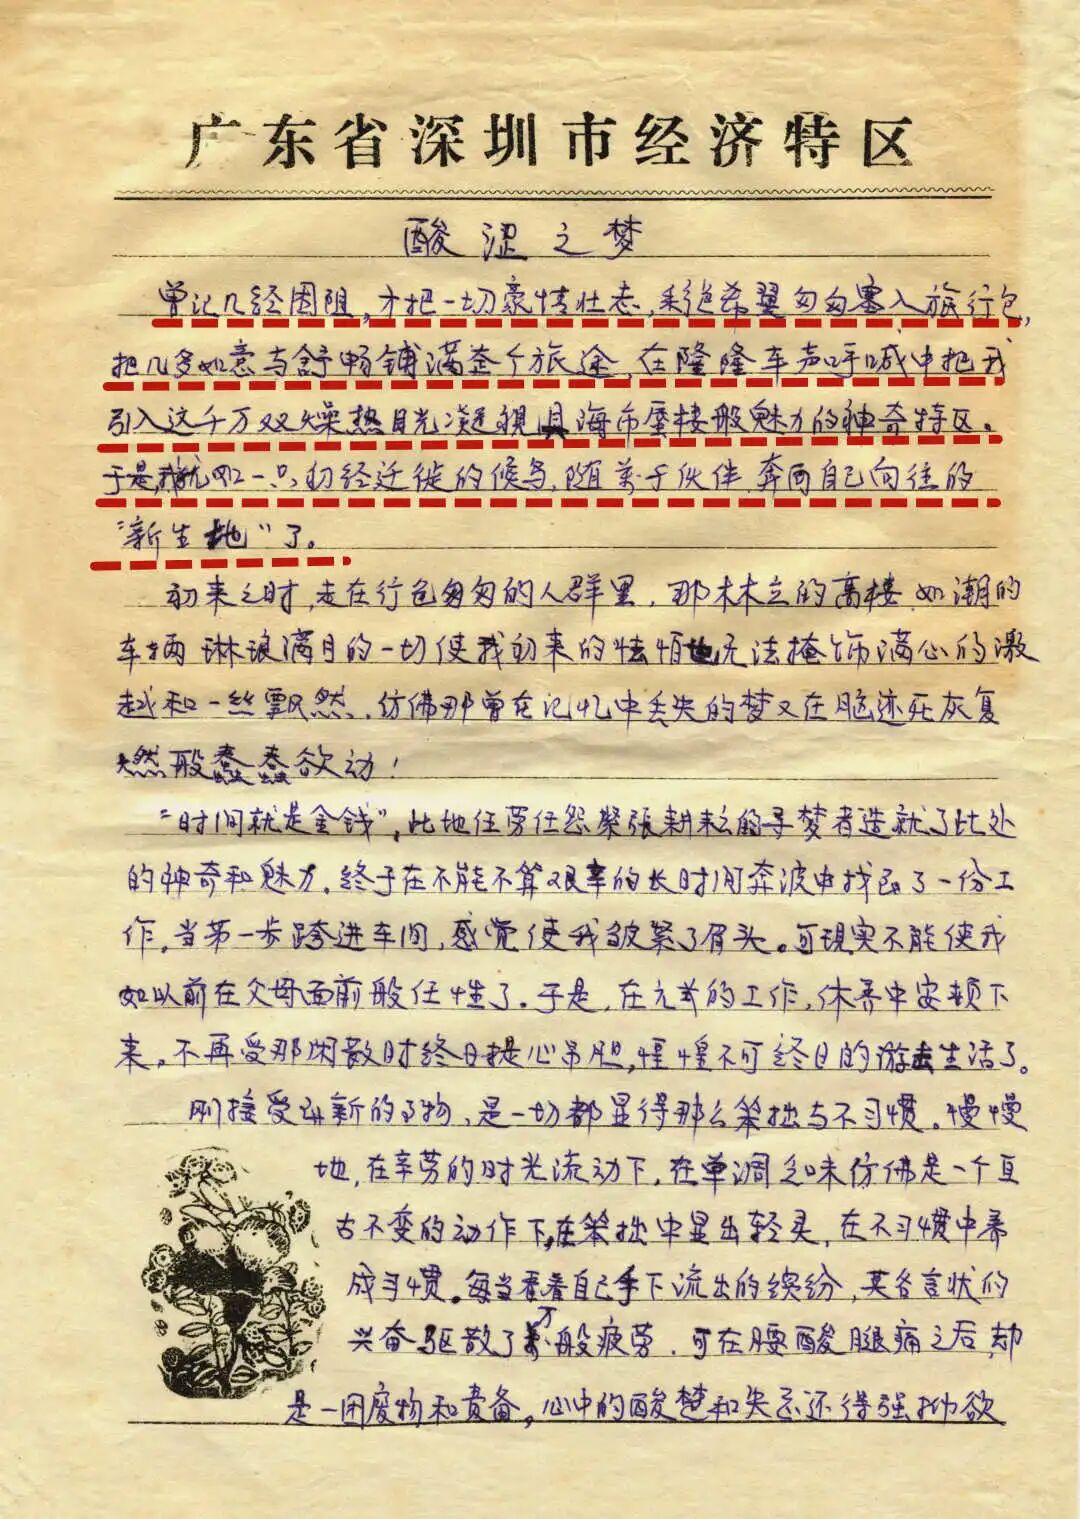 广东省深圳市经济特区
酸涩之梦
曾记几经困阻，才把一切豪情壮志，采绝希翼匆匆塞入旅行包，
把几多如意与舒畅铺满整个旅途，在隆隆车声呼喊中把我
引入这千万双燥热目光凝视具海市蜃楼般魅力的神奇特区。
于是，我就如一只初经迁徙的候鸟，随若干伙伴，奔向自己向往的
“新生地”了。
初来之时，走在行色匆匆的人群里，那林立的高楼，如潮的
车辆，琳琅满目的一切使我初来的怯怕也无法掩饰满心的激
越和一丝飘然，仿佛那曾在记忆中丢失的梦又在脑迹死灰复
燃般蠢蠢欲动！
“时间就是金钱”，此地任劳任怨紧张耕耘的寻梦者造就了此处
的神奇和魅力。终于在不能不算艰辛的长时间奔波中找到了一份工
作，当第一步跨进车间，感觉使我皱紧了眉头。可现实不能使我
如以前在父母面前般任性了。于是，在的工作，休养中安顿下
来，不再受那闲散时终日提心吊胆，惶惶不可终日的游生活了。
刚接受新的事物，是一切都显得那么笨拙与不习惯。慢慢
地，在辛劳的时光流动下，在单调乏味仿佛是一个亘
古不变的动作下，在笨拙中显出轻灵，在不习惯中养
成习惯。每当看着自己手下流出的缤纷，莫名言状的
兴奋驱散了万般疲劳，可在腰酸腿痛之后，却
是一团废物和责备，心中的酸楚和失意还得强抑欲